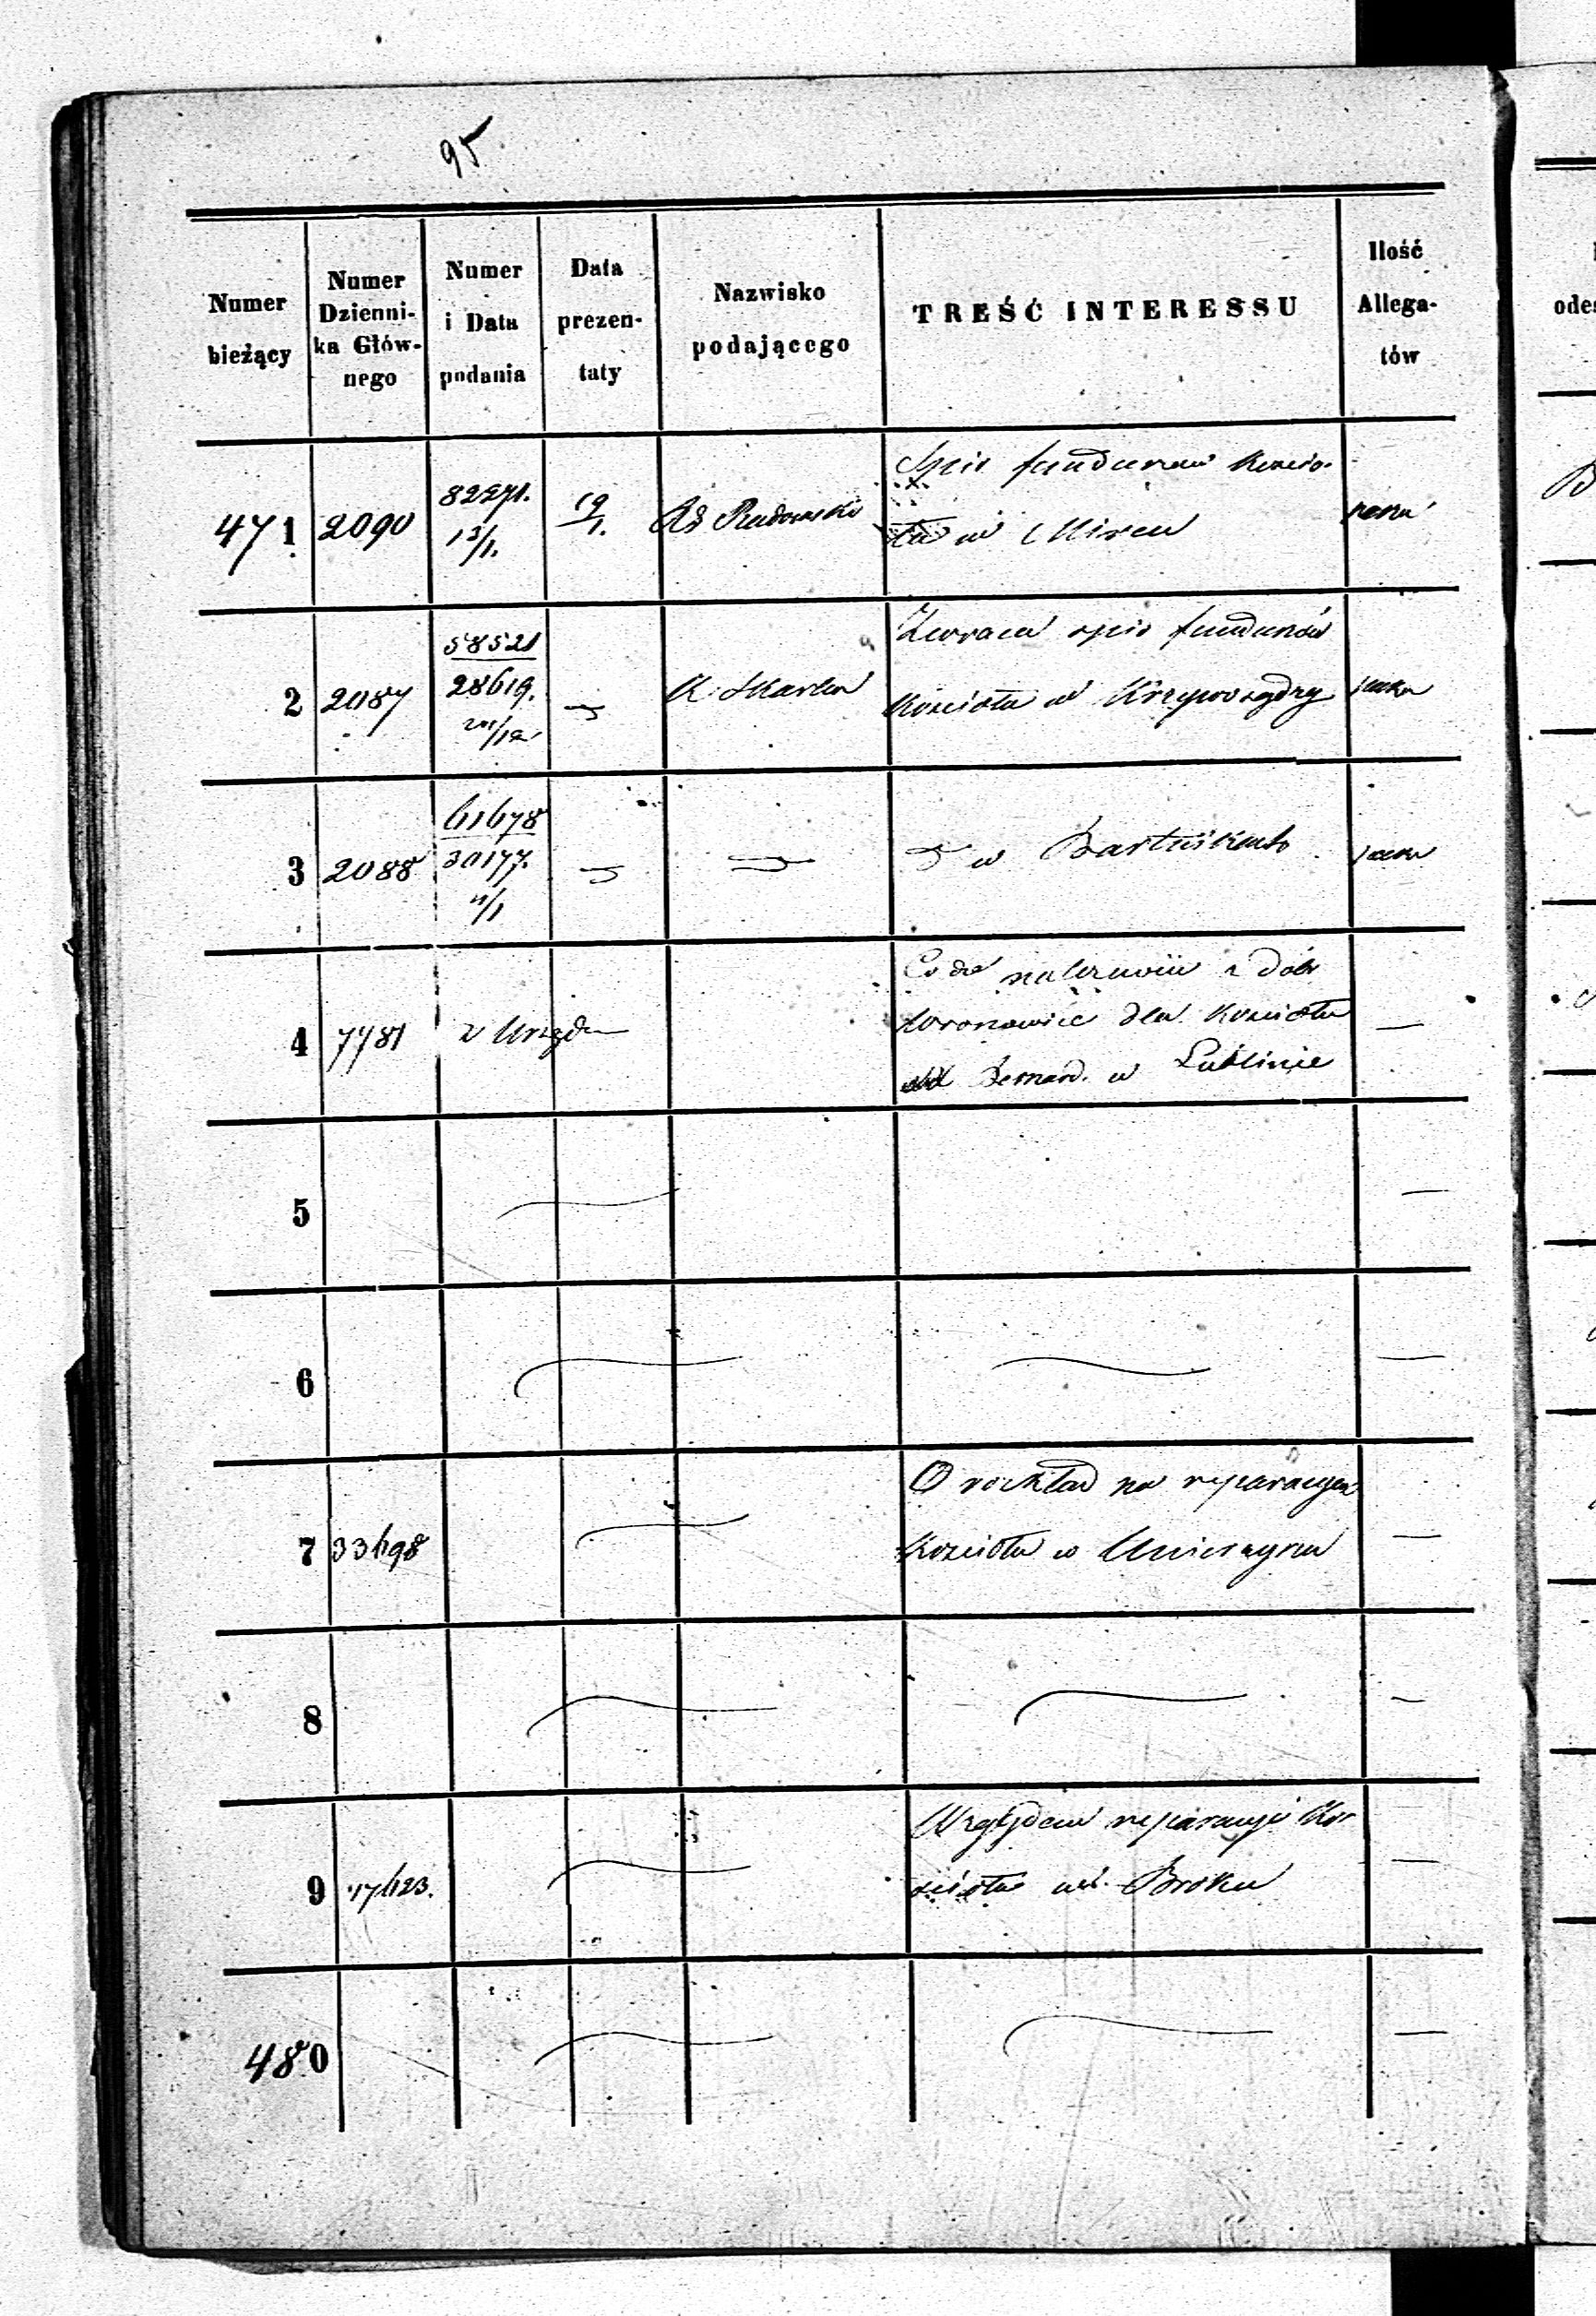 95
Numer bieżący
Numer Dzienni-ka Głów-nego
Numer i Data podania
Data prezen-taty
Nazwisko podającego
TREŚĆ INTERESSU
Ilość Allega-tów
471 2090 82271. 13/1. 19/1. Rd Radomski Spis funduszów Kościo-
ła w Mircu
2 2087 58521 Zwraca spis funduszów
28619. K. Skarbu Kościoła w Krzyworzydzy
3 2088 61678
30177. w Bartnikach
4 7781 z Urzędu Co do należności z dóbr
Wronowic dla Kościoła
Bernard. w Lublinie
5
6
7 33698 O rozkład na reparacyą
Kościoła w
8
9 17623. Względem reparacyi Ko-
ścioła w Broku
480